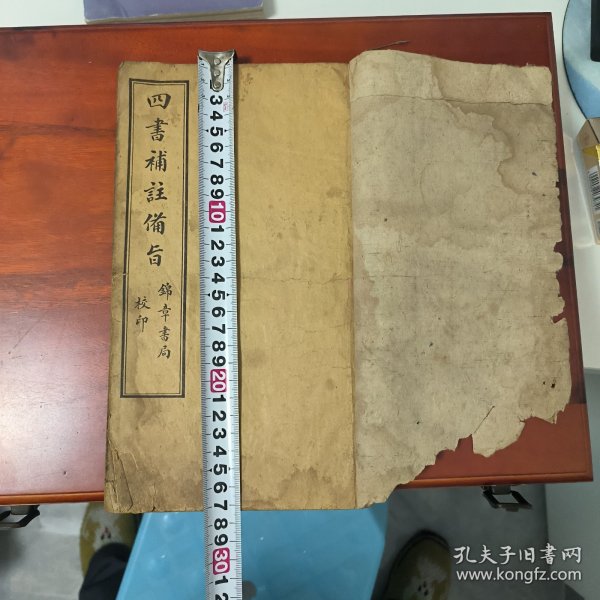 四書補註備旨
錦章書局
校印
3 4 5 6 7 8 9 10 1 2 3 4 5 6 7 8 9 20 1 2 3 4 5 6 7 8 9 30 1 2
孔夫子旧书网
www.kongfz.com